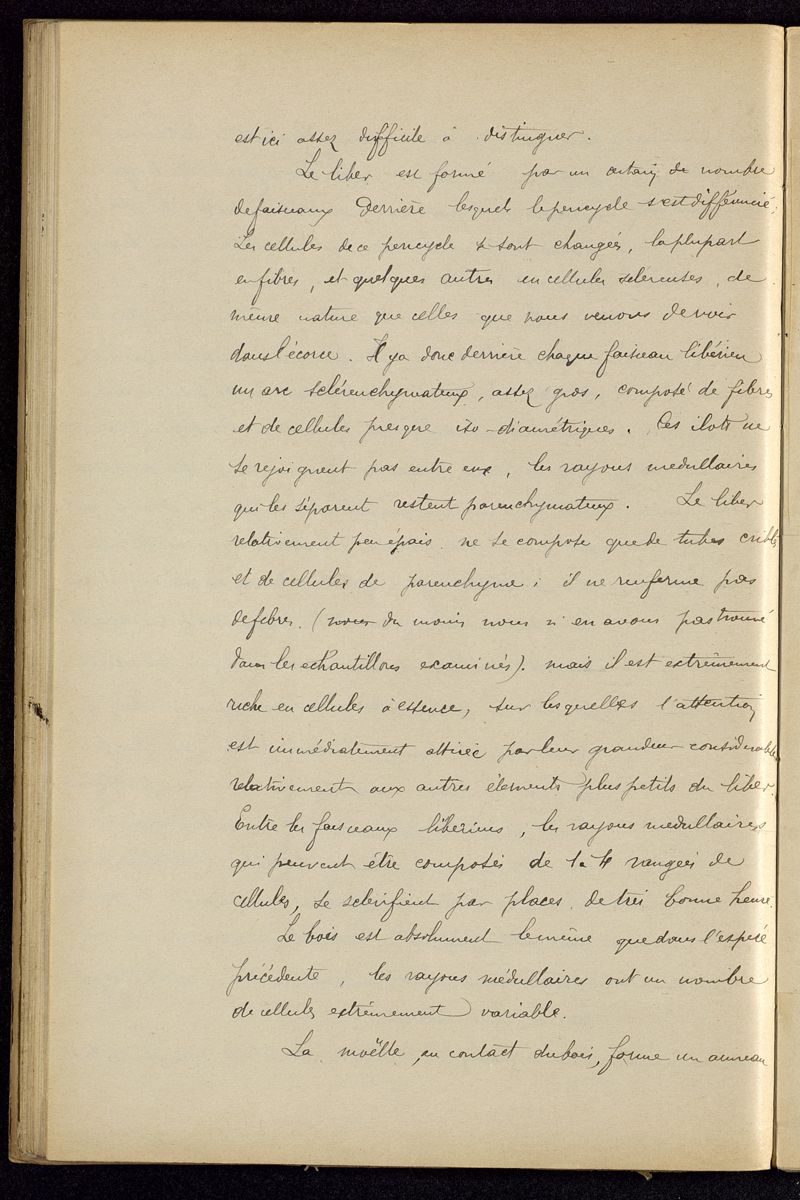 est ici assez difficile à distinguer.
Le liber est formé par un certain de nombre
de faisceaux derrière lesquels le péricycle s'est différencié.
Les cellules de ce péricycle se sont changées, la plupart
en fibres, et quelques autres en cellules scléreuses, de
même nature que celles que nous venons de voir
dans l'écorce. Il y a donc derrière chaque faisceau libérien
un arc sclérenchymateux, assez gros, composé de fibres
et de cellules presque iso-diamétriques. Ces ilots ne
se rejoignent pas entre eux, les rayons medullaires
qui les séparent restent parenchymateux. Le liber
relativement peu épais ne se compose que de tubes criblés
et de cellules de parenchyme; il ne renferme pas
de fibres. (du moins nous n'en avons pas trouvé
dans les echantillons examinés). mais il est extrêmement
riche en cellules à essence, sur lesquelles l'attention
est immédiatement attirée par leur grandeur considerable
relativement aux autres élements plus petits du liber.
Entre les faisceaux libériens, les rayons medullaires
qui peuvent être composés de 1 à 4 rangées de
cellules, se sclérifient par places, de très bonne heure.
Le bois est absolument le même que dans l'espèce
précédente, les rayons médullaires ont un nombre
de cellules extrêmement variable.
La moëlle, en contact du bois, forme un anneau